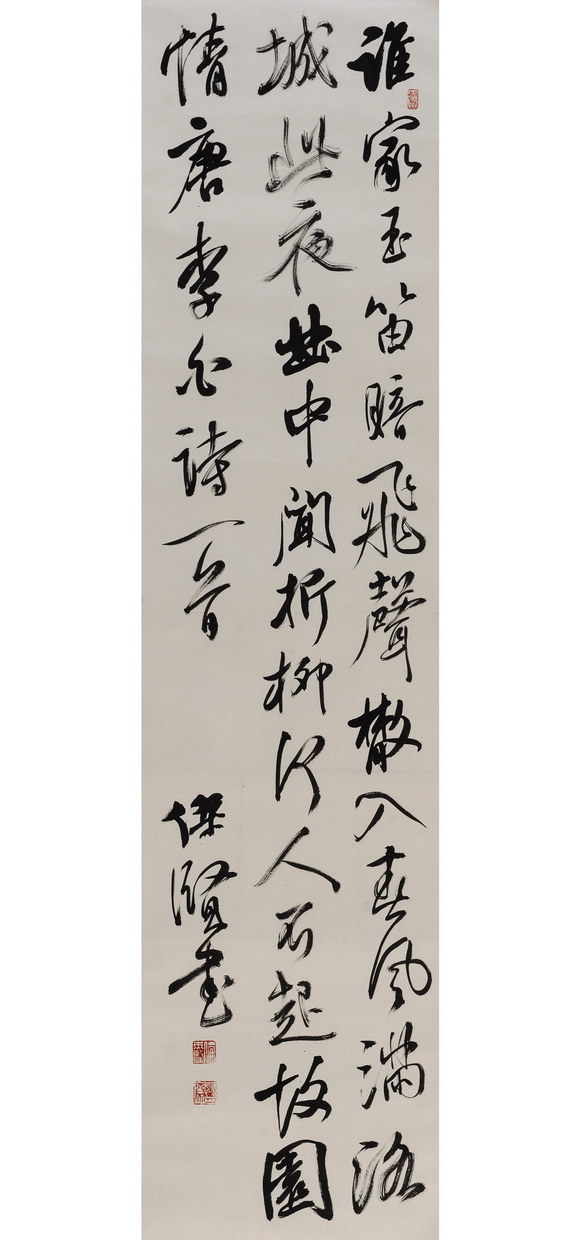 誰家玉笛暗飛聲散入春風滿洛
城此夜曲中聞折柳何人不起故園
情唐李白詩一首
傑賢書